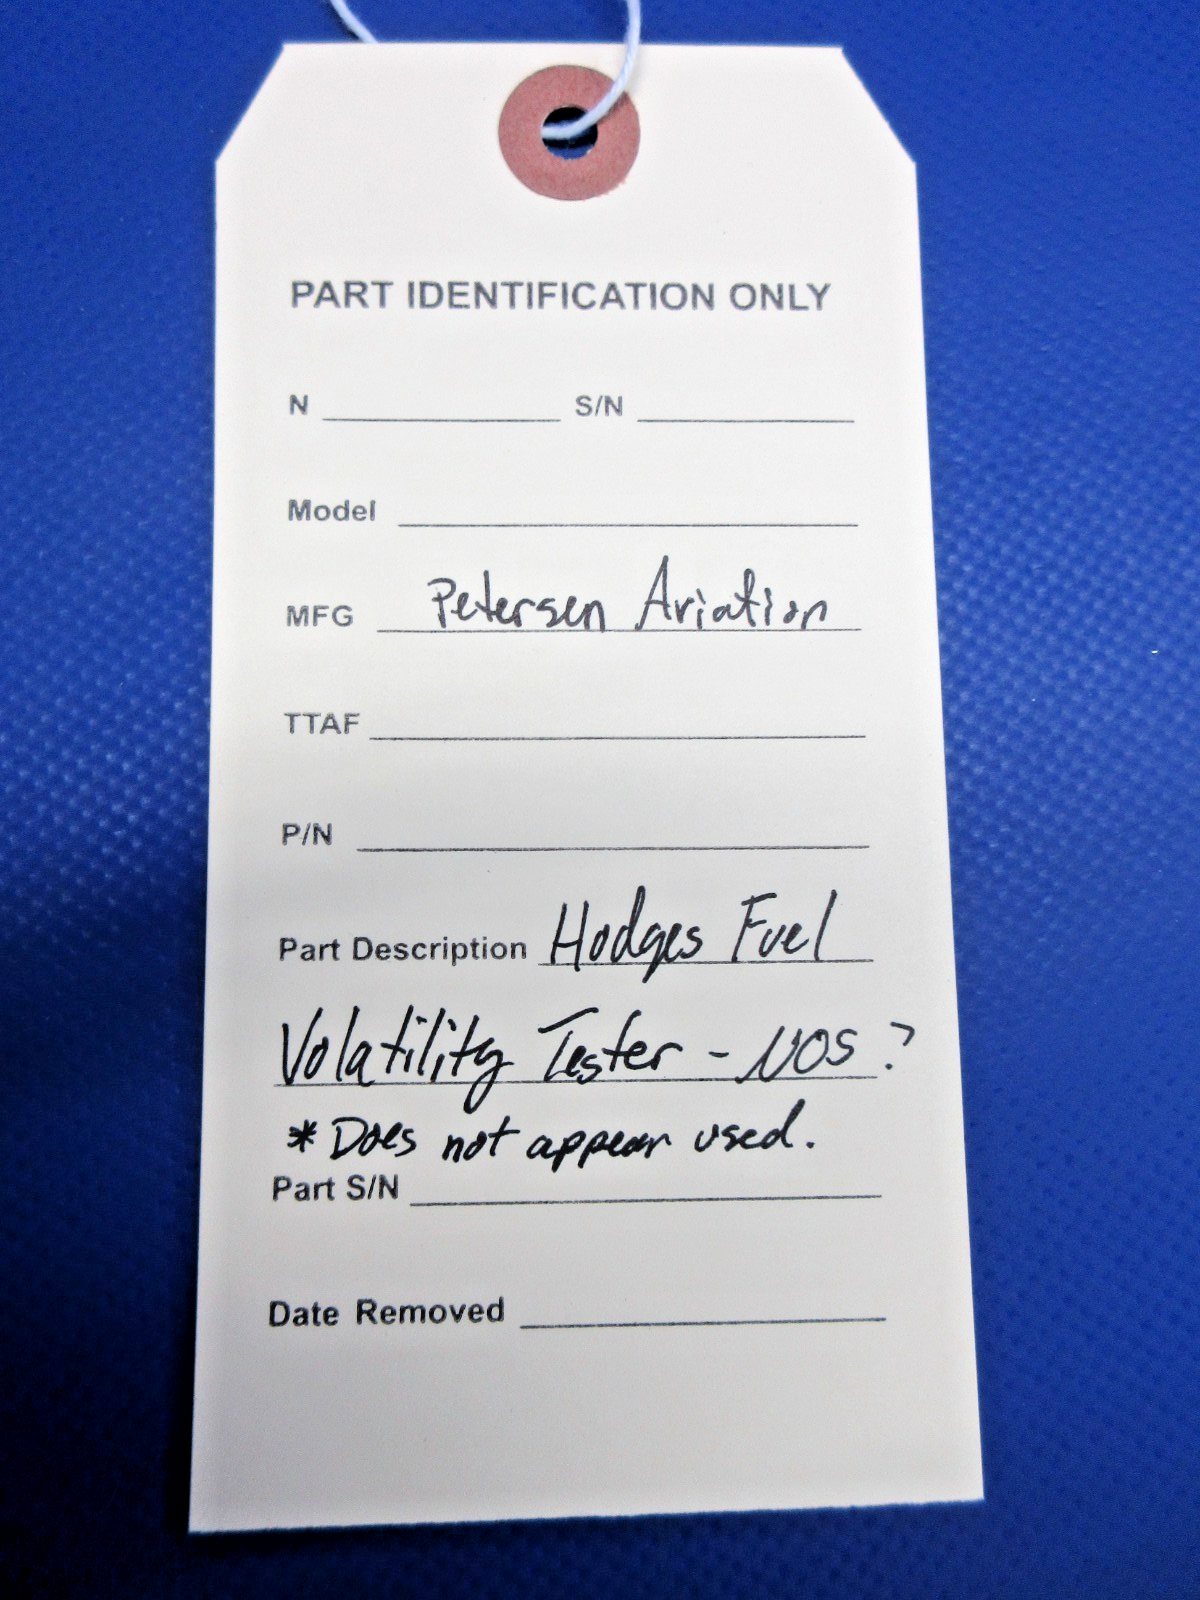 PART IDENTIFICATION ONLY
N S/N
Model
MFG Petersen Aviation
TTAF
P/N
Part Description Hodges Fuel
Volatility Tester - NOS ?
* Does not appear used.
Part S/N
Date Removed